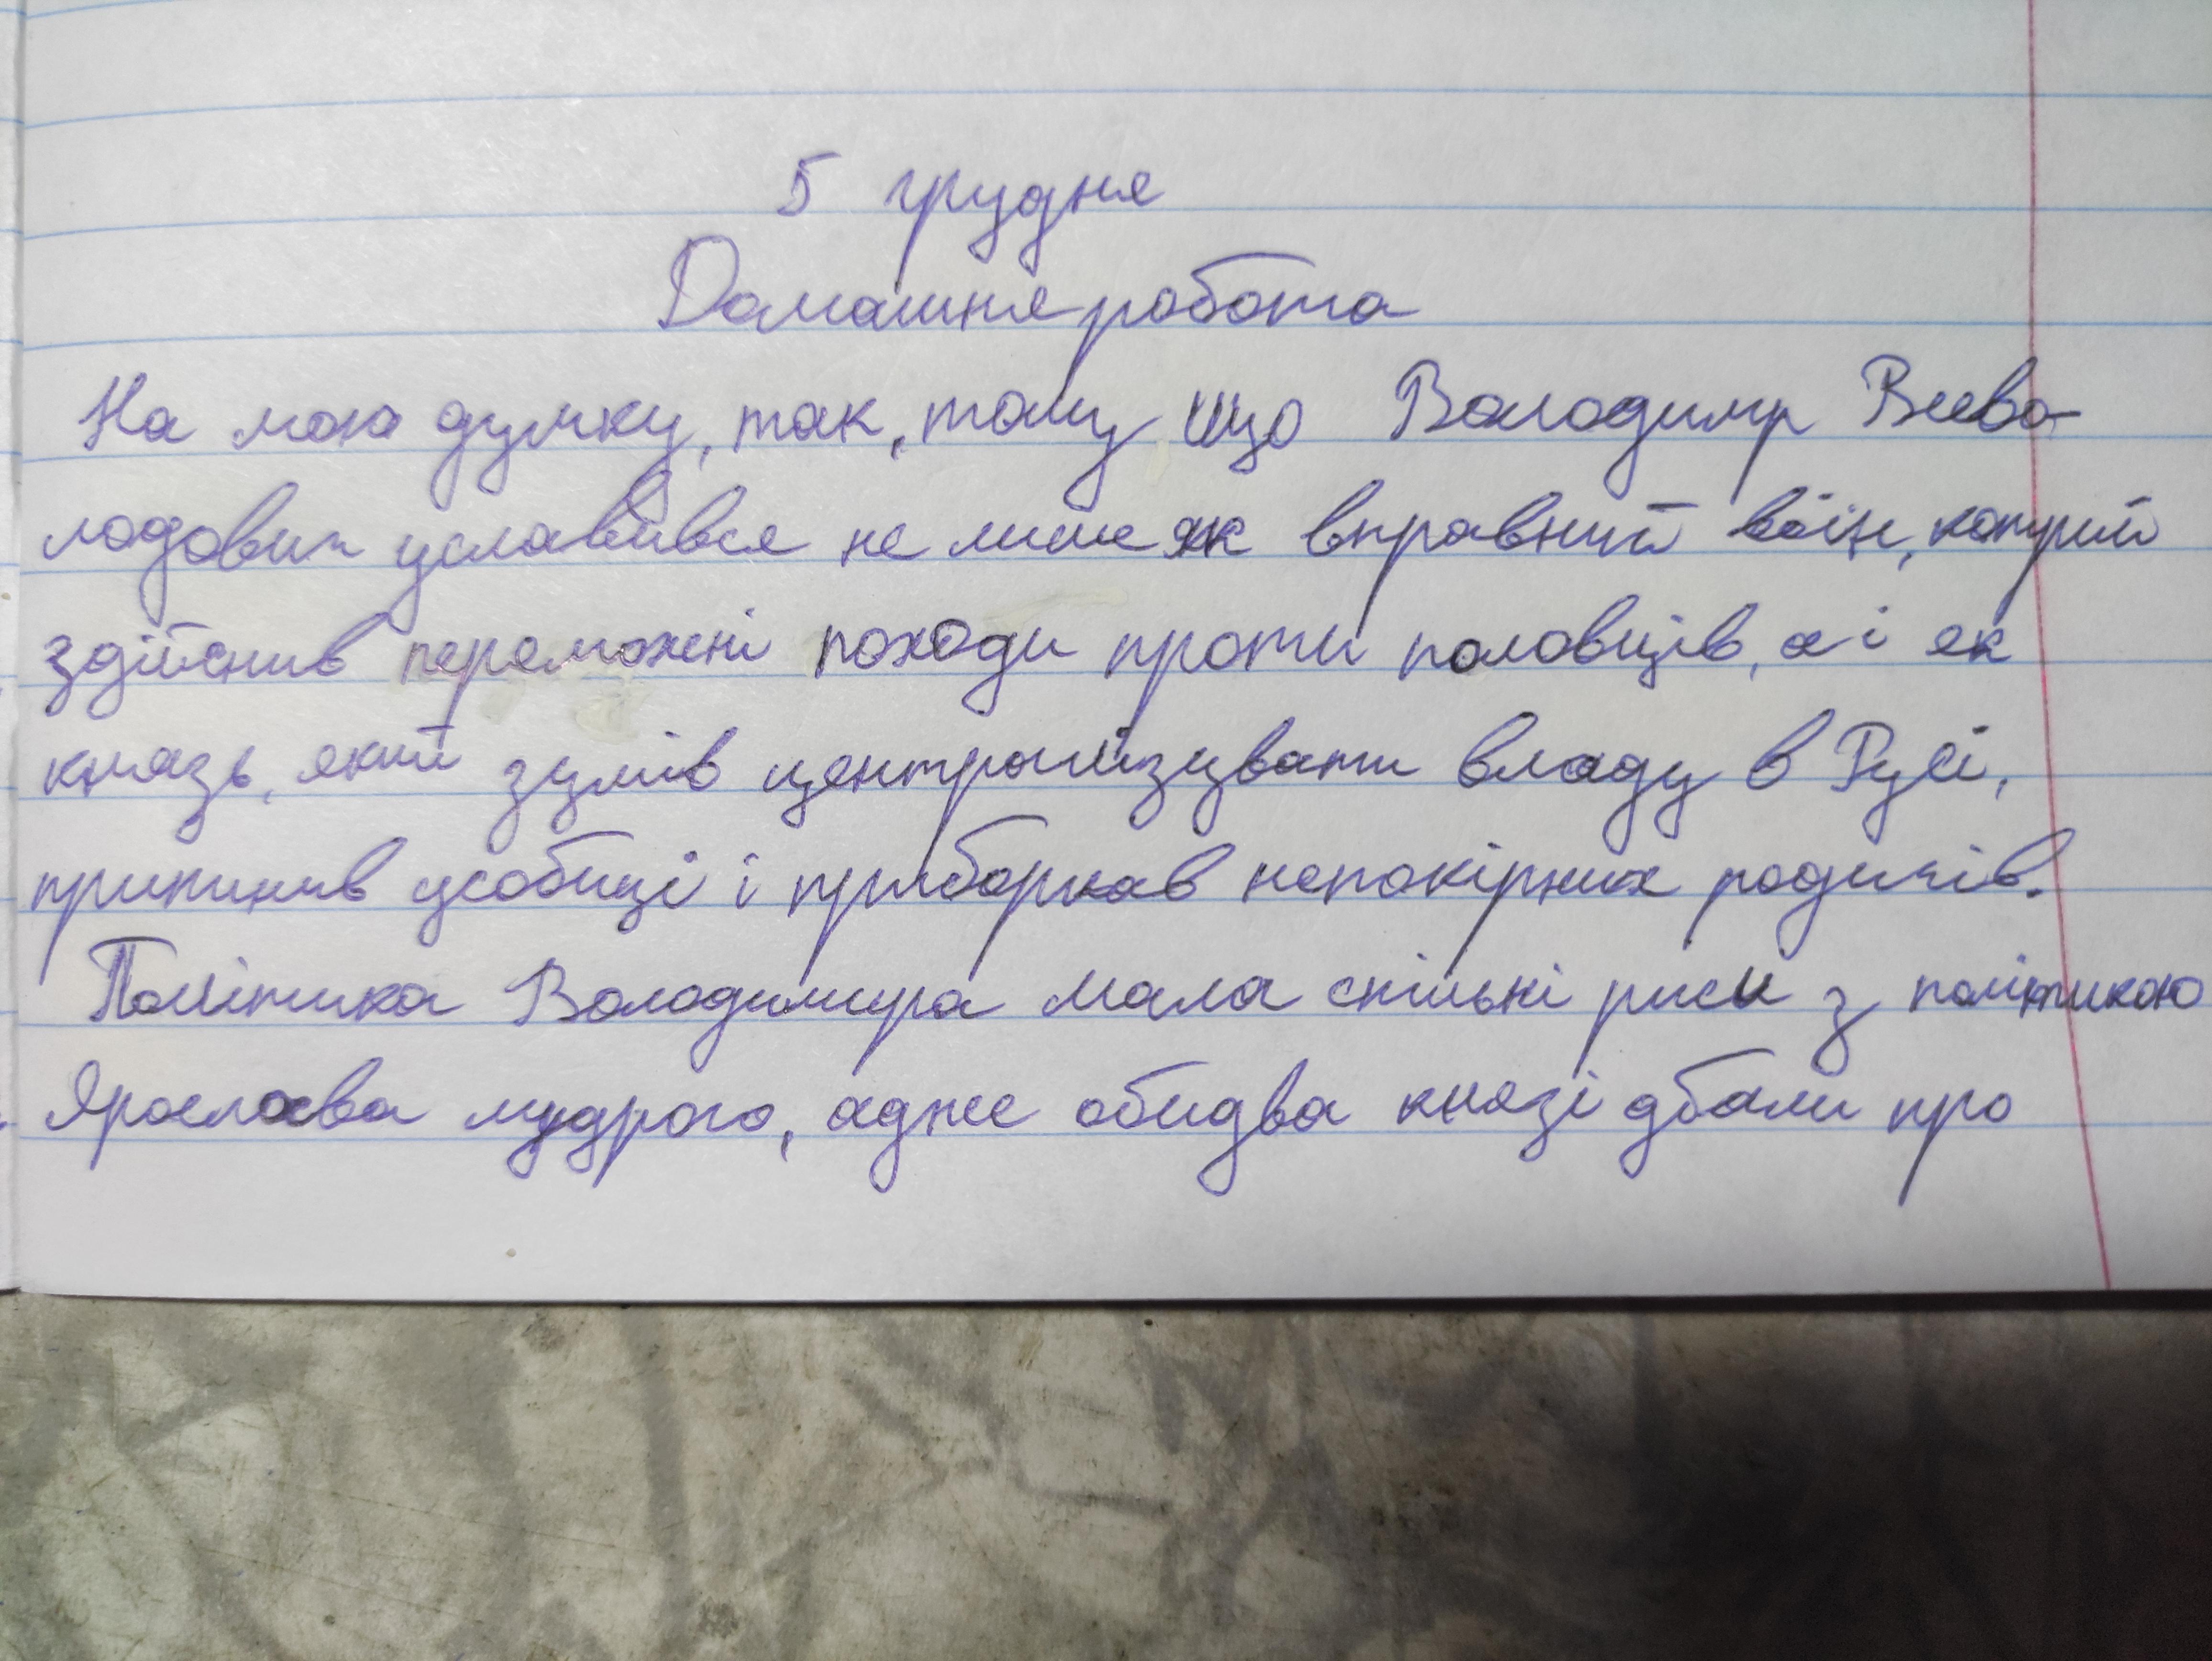 5 грудня
Домашня робота
На мою думку, так, тому що Володимир Всево-
лодович уславився не лише як вправний воїн, котрий
здійснив переможні походи проти половців, а і як
князь, який зумів централізувати владу в Русі,
припинив усобиці і приборкав непокірних родичів.
Політика Володимира мала спільні риси з політикою
Ярослава мудрого, адже обидва князі дбали про